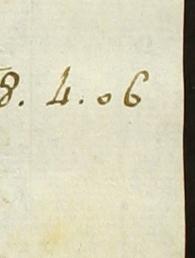 8. 4. 06